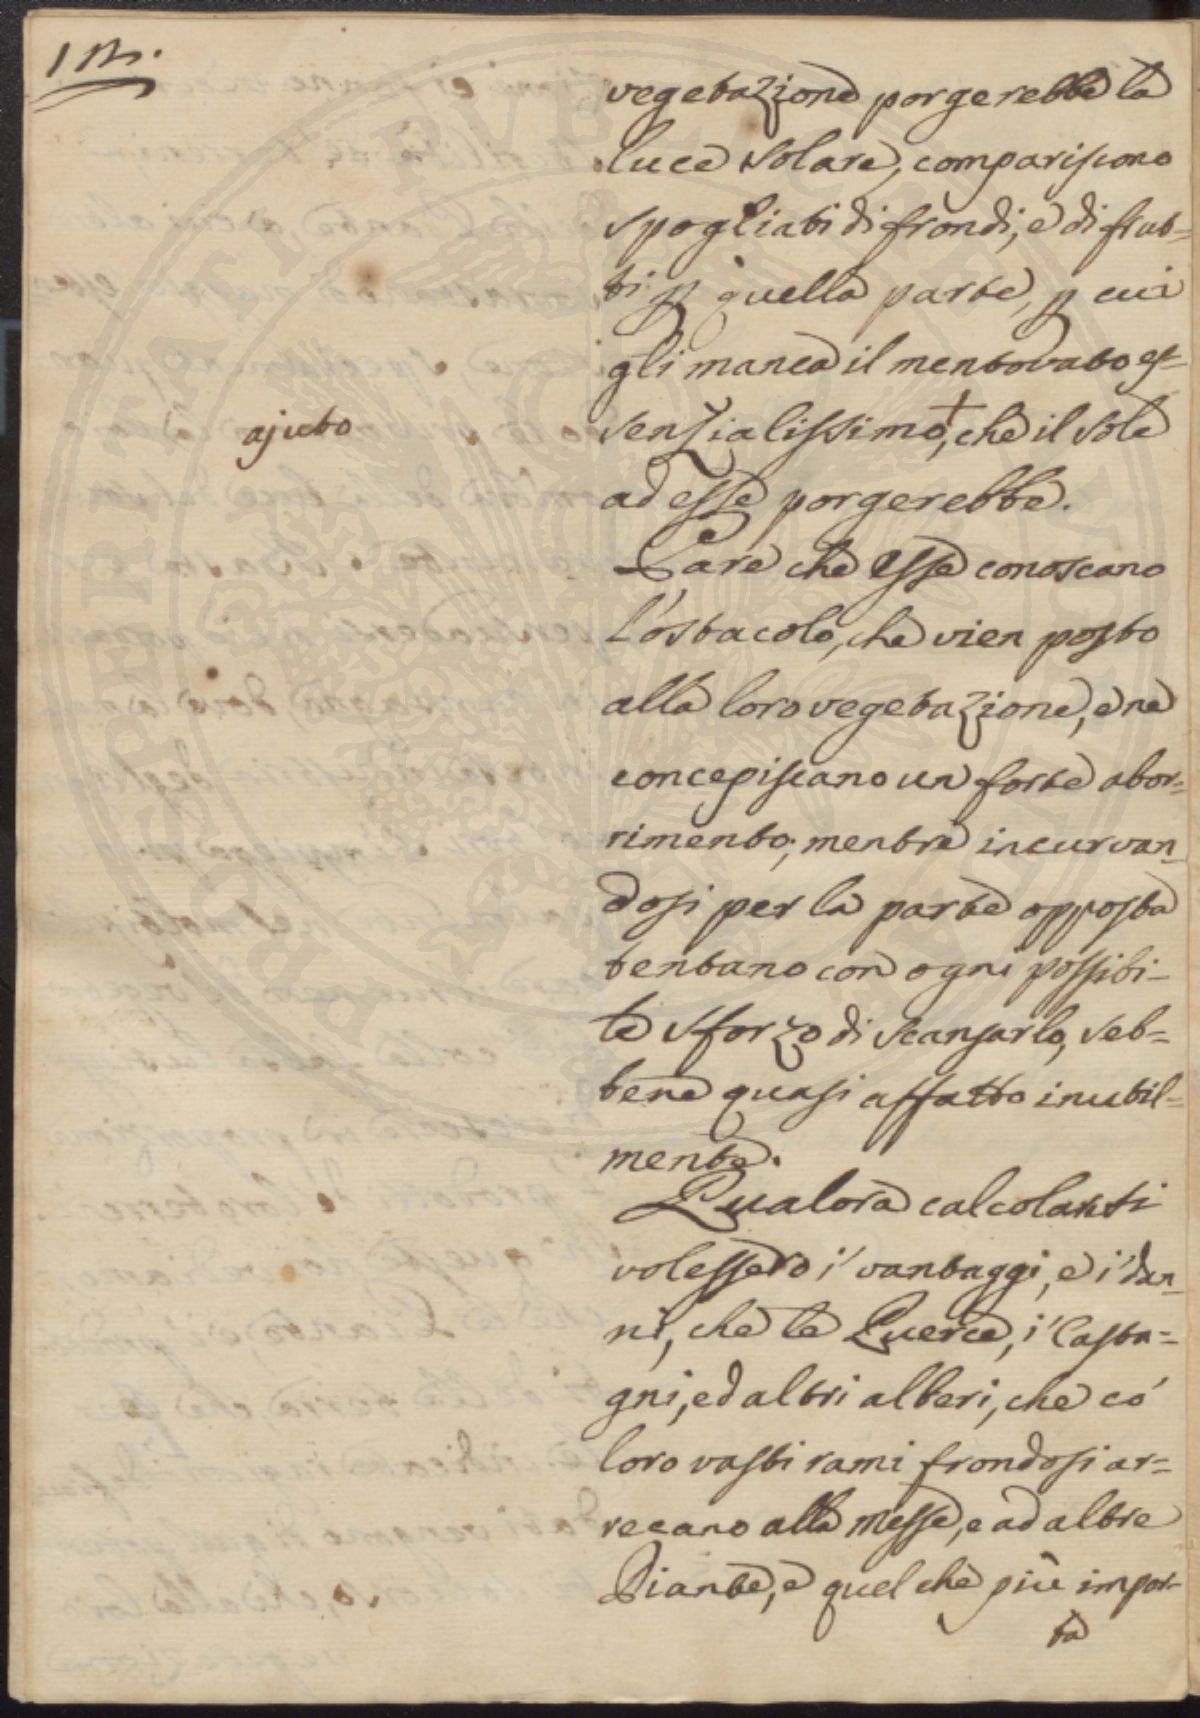 vegetazione porgerebbe la
luce solare, compariscono
spogliati di frondi, e di frut=
ti ꝑ quella parte, ꝑ cui
gli manca il mentovato es=
ajuto
senzialissimo+, che il sole
ad esse porgerebbe.
Pare che esse conoscano
l'óstacolo, che vien posto
alla loro vegetazione, e ne
concepiscano un forte abor=
rimento; mentre incurvan=
dosi per la parte opposta
tentano con ogni possibi=
le sforzo di scansarlo, seb=
bene quasi affatto inutil=
mente.
Qualora calcolar si
volessero i' vantaggi, e i' dan=
ni, che le Querce, i' Casta=
gni, ed altri alberi, che có
loro vasti rami frondosi ar=
recano alla messe, e ad altre
Piante, e quel che più impor=
ta